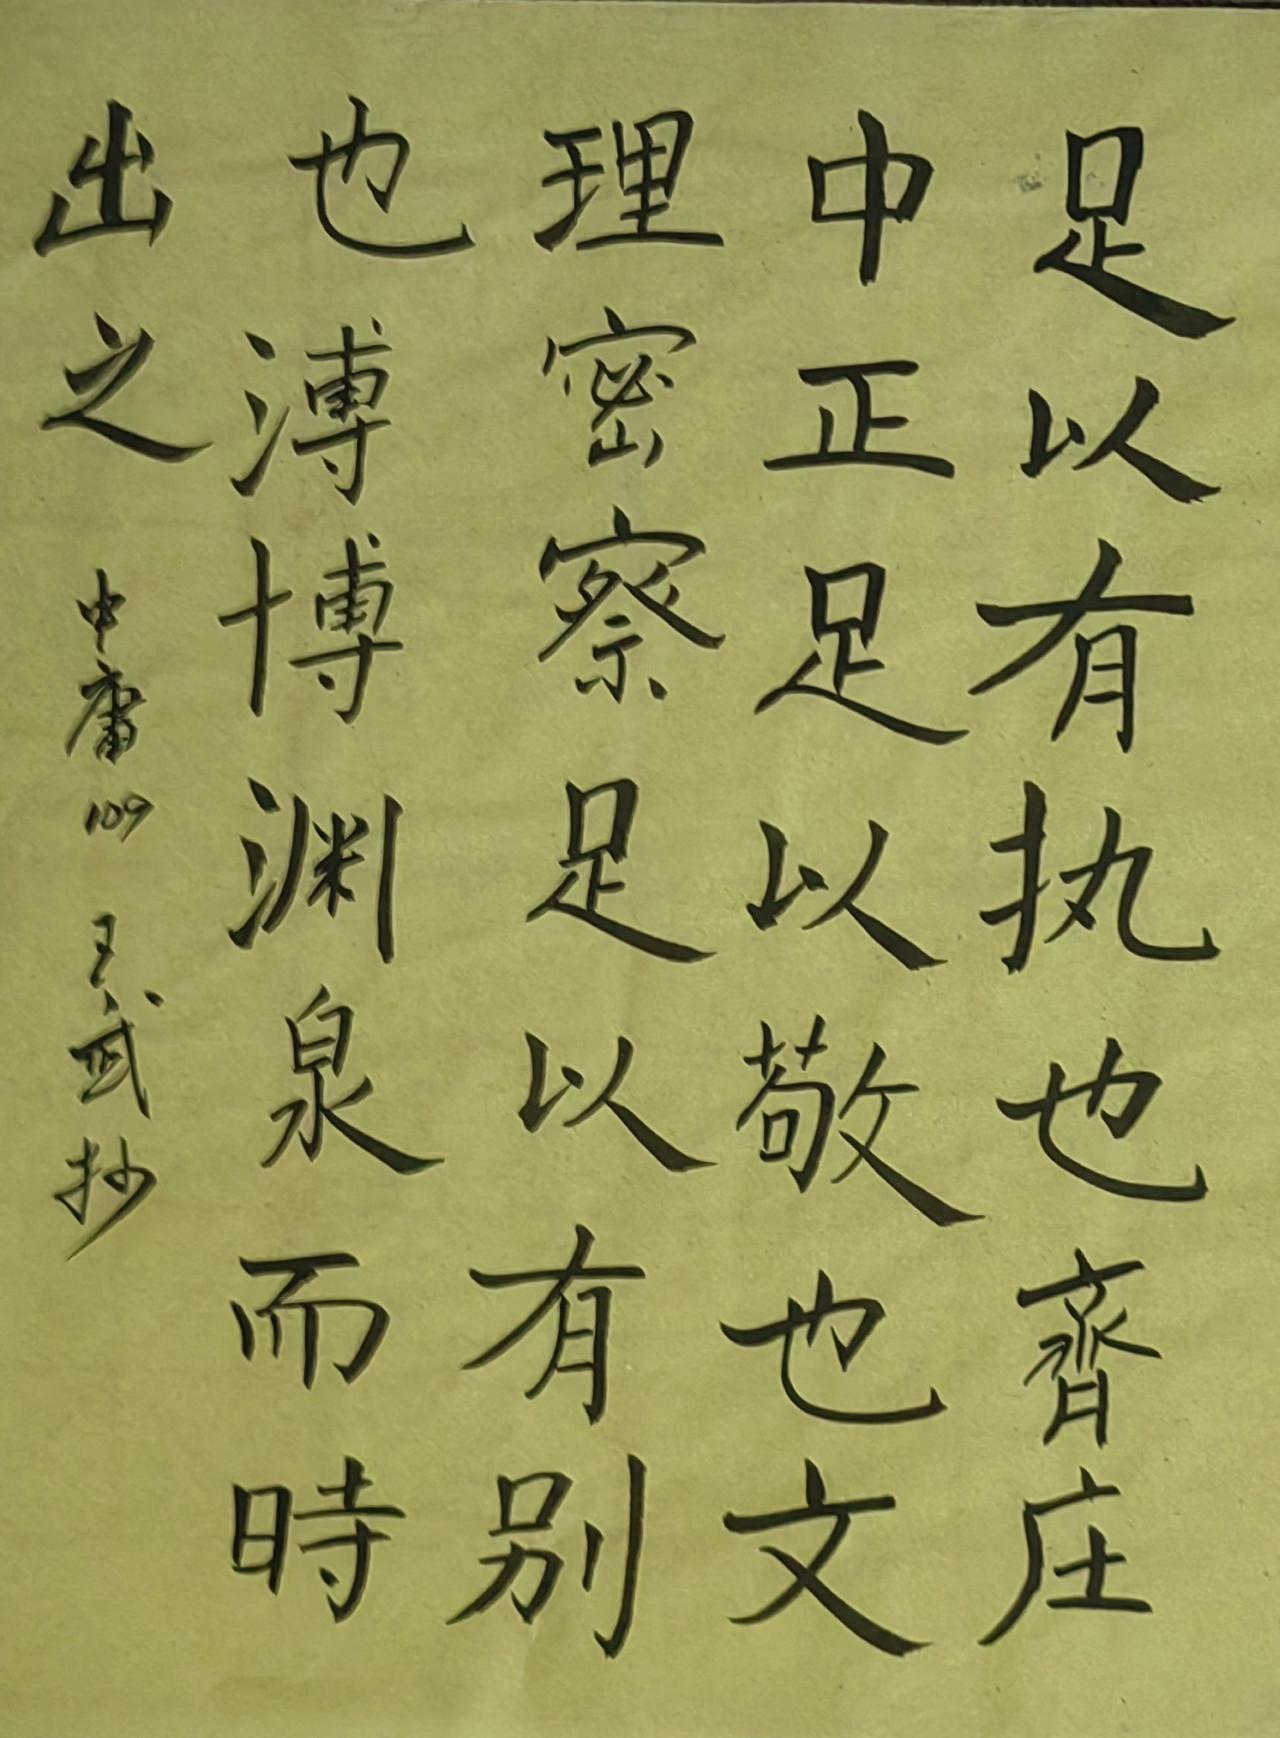 足以有执也齊庄
中正足以敬也文
理密察足以有别
也溥博渊泉而時
出之
中庸109 王武抄